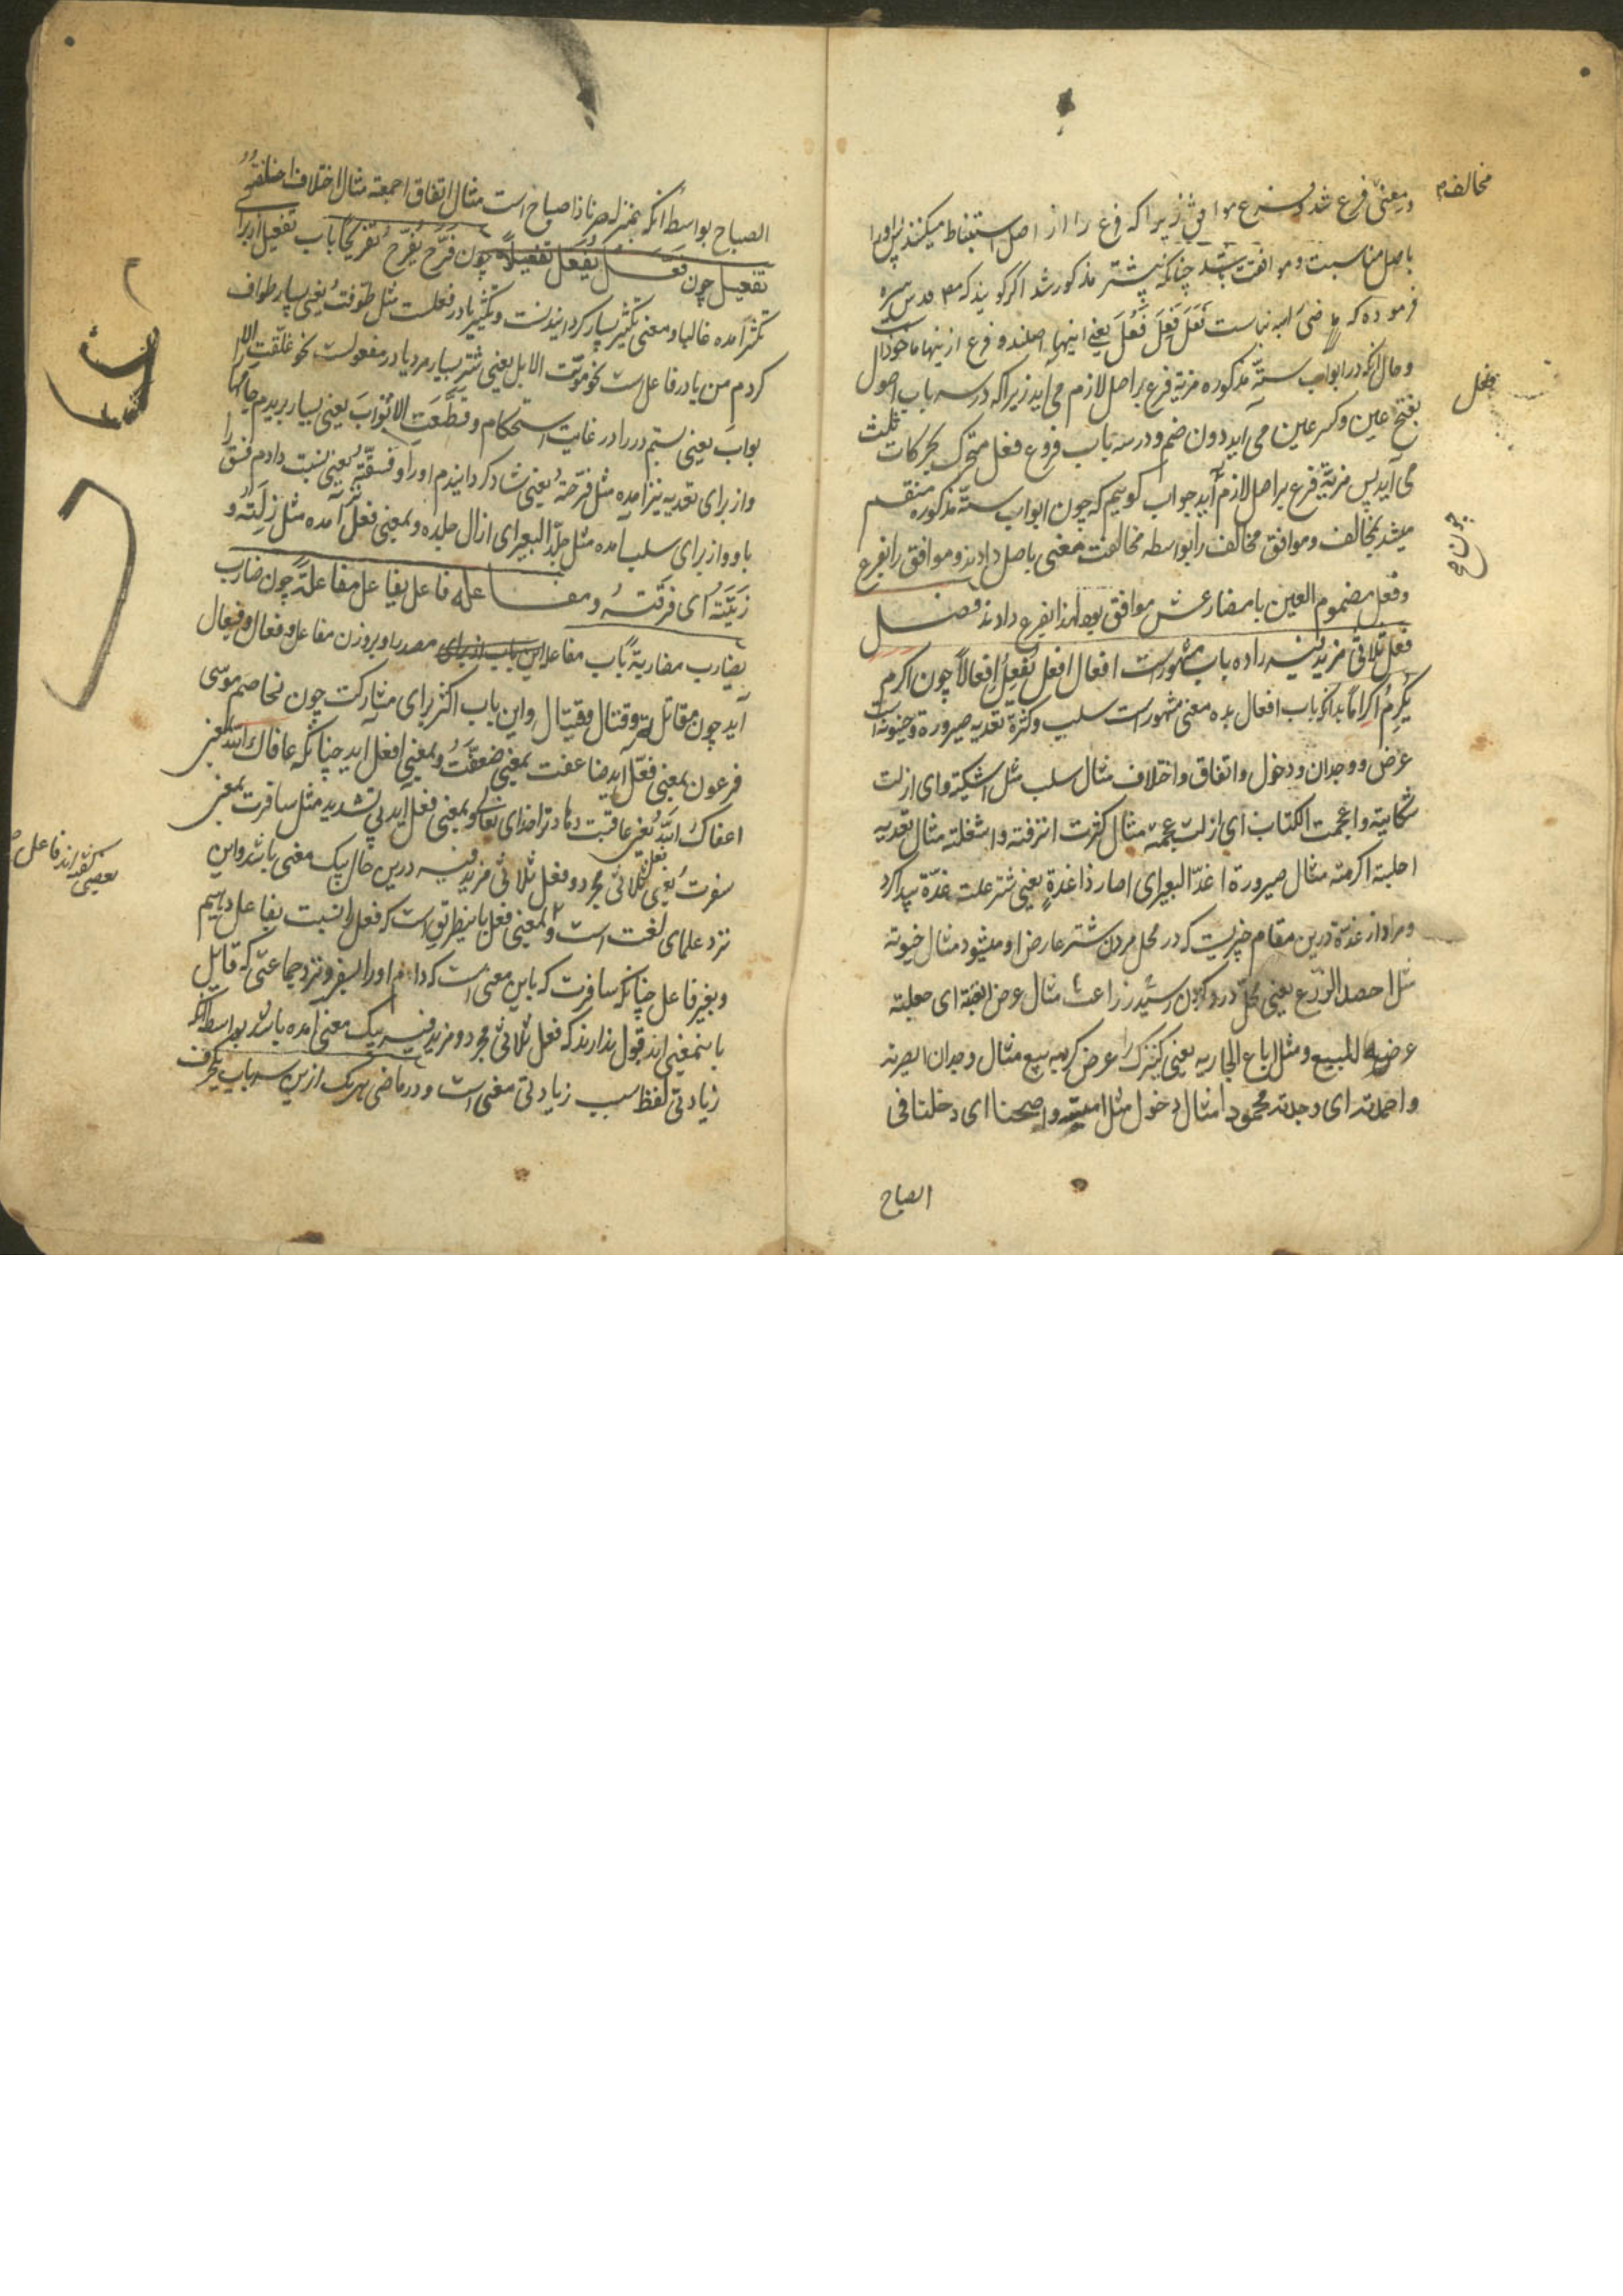 مخالف
ومعنی فرع شد و فرع موافق زیرا که فرع را از اصل استنباط میکنند پس او را
باصل مناسبت وموافقت باشد چنانکه پیشتر مذکور شد اگر گویند که مص قدس سره
فرموده که ماضی است فَعَلَ فَعِلَ فَعُلَ یعنی اینها اصلند و فرع ازینها ماخوذ
وحال آنکه در ابواب ستّه مذکوره مزیة فرع بر اصل لازم می آید زیرا که در سه باب اصول
بفتح عین وکسر عین می آید دون ضم ودر سه باب فروع فعل متحرک بحرکات ثلث
می آید پس مزیّة فرع بر اصل لازم آید جواب گوییم که چون ابواب ستّه مذکوره منقسم
میشد بمخالف وموافق مخالف را بواسطه مخالفت معنی باصل دادند وموافق را بفرع
وفعل مضموم العین با مضارعش موافق بود لهذا بفرع دادند فصل
فعل ثلاثی مزید فیه را ده باب مشهورست افعال افعل یُفعِلُ اِفعالاً چون اکرم
یُکرِمُ اکراماً بدانکه باب افعال بده معنی مشهور است سلب وکثرة تعدیه صیرورة وحینونة
عرض ووجدان ودخول واتفاق واختلاف مثال سلب مثل اشکیته ای ازلت
شکایته واعجمت الکتاب ای ازلت عجمته مثال کثرت اترفته واشغلته مثال تعدیه
اجلسته اکرمته مثال صیرورة اغدّ البعیر ای صار ذا غدةٍ یعنی شتر علت غدّة پیدا کرد
ومراد از غدّة درین مقام چیزیست که در محل مردن شتر عارض او میشود مثال حینونة
مثل احصد الزرع یعنی محل درو کردن رسید زراعت مثال عرض ابعته ای جعلته
عرضة للبیع ومثل اباع الجاریه یعنی کنیزک را عرض کرد به بیع مثال وجدان ابصرته
واحمدته ای وجدته محمودا مثال دخول مثل واصبحنا ای دخلنا فی
الصباح
الصباح بواسطه آنکه بمنزله صرنا ذا صباح است مثال اتفاق اجمعته مثال اختلاف اخلفته و
تفعیل چون فَعَّلَ یُفَعِّلُ تفعیلاً چون فَرَّحَ یُفَرِّحُ تفریحاً باب تفعیل از برای
تکثیر آمده غالبا ومعنی تکثیر بسیار گردانیدنست وتکثیر یا در فعلست مثل طوّفتُ یعنی بسیار طواف
کردم من یا در فاعل است نحو موّتت الابل یعنی شتر بسیار مرد یا در مفعولست نحو غلّقت الا
بواب یعنی بستم درر را در غایت استحکام وقطّعت الاثواب یعنی بسیار بریدم جامها
واز برای تعدیه نیز آمده مثل فرّحته یعنی شاد گردانیدم اورا وفسّقته یعنی نسبت دادم فسق را
باو واز برای سلب آمده مثل جلّد البعیر ای ازال جلده وبمعنی فعل نیز آمده مثل زلته و
زیّلته ای فرّقته ومفاعله فاعل یفاعل مفاعلة چون ضارب
یضارب مضاربةً باب مفاعله مصدر او بر وزن مفاعل وفعال وفیعال
آید چون مقاتلة وقتال وقیتال واین باب اکثر برای مشارکت چون تخاصم موسی
فرعون بمعنی فعّل آید ضاعفت بمعنی ضعّفتُ وبمعنی افعل آید چنانکه عافاک الله بمعنی
اعفاک الله یعنی عاقبت دهاد ترا خدای تعالی وبمعنی فعل آید بی تشدید مثل سافرت بمعنی
سفرتُ یعنی فعل ثلاثی مجرد وفعل ثلاثی مزید فیه درین حال بیک معنی باشد واین
نزد علمای لغت است وبمعنی فعل باینطریق است که فعل را نسبت بفاعل دهیم
وبغیر فاعل چنانکه سافرت که باین معنی است که دادم اورا بسفر ونزد جماعتی که قایل
باینمعنی اند قبول ندارند که فعل ثلاثی مجرد ومزید فیه بیک معنی آمده باشد بواسطه آنکه
زیادتی لفظ سبب زیادتی معنی است ودر ماضی هریک ازین سه باب یکحرف
بعضی گفته اند فاعل